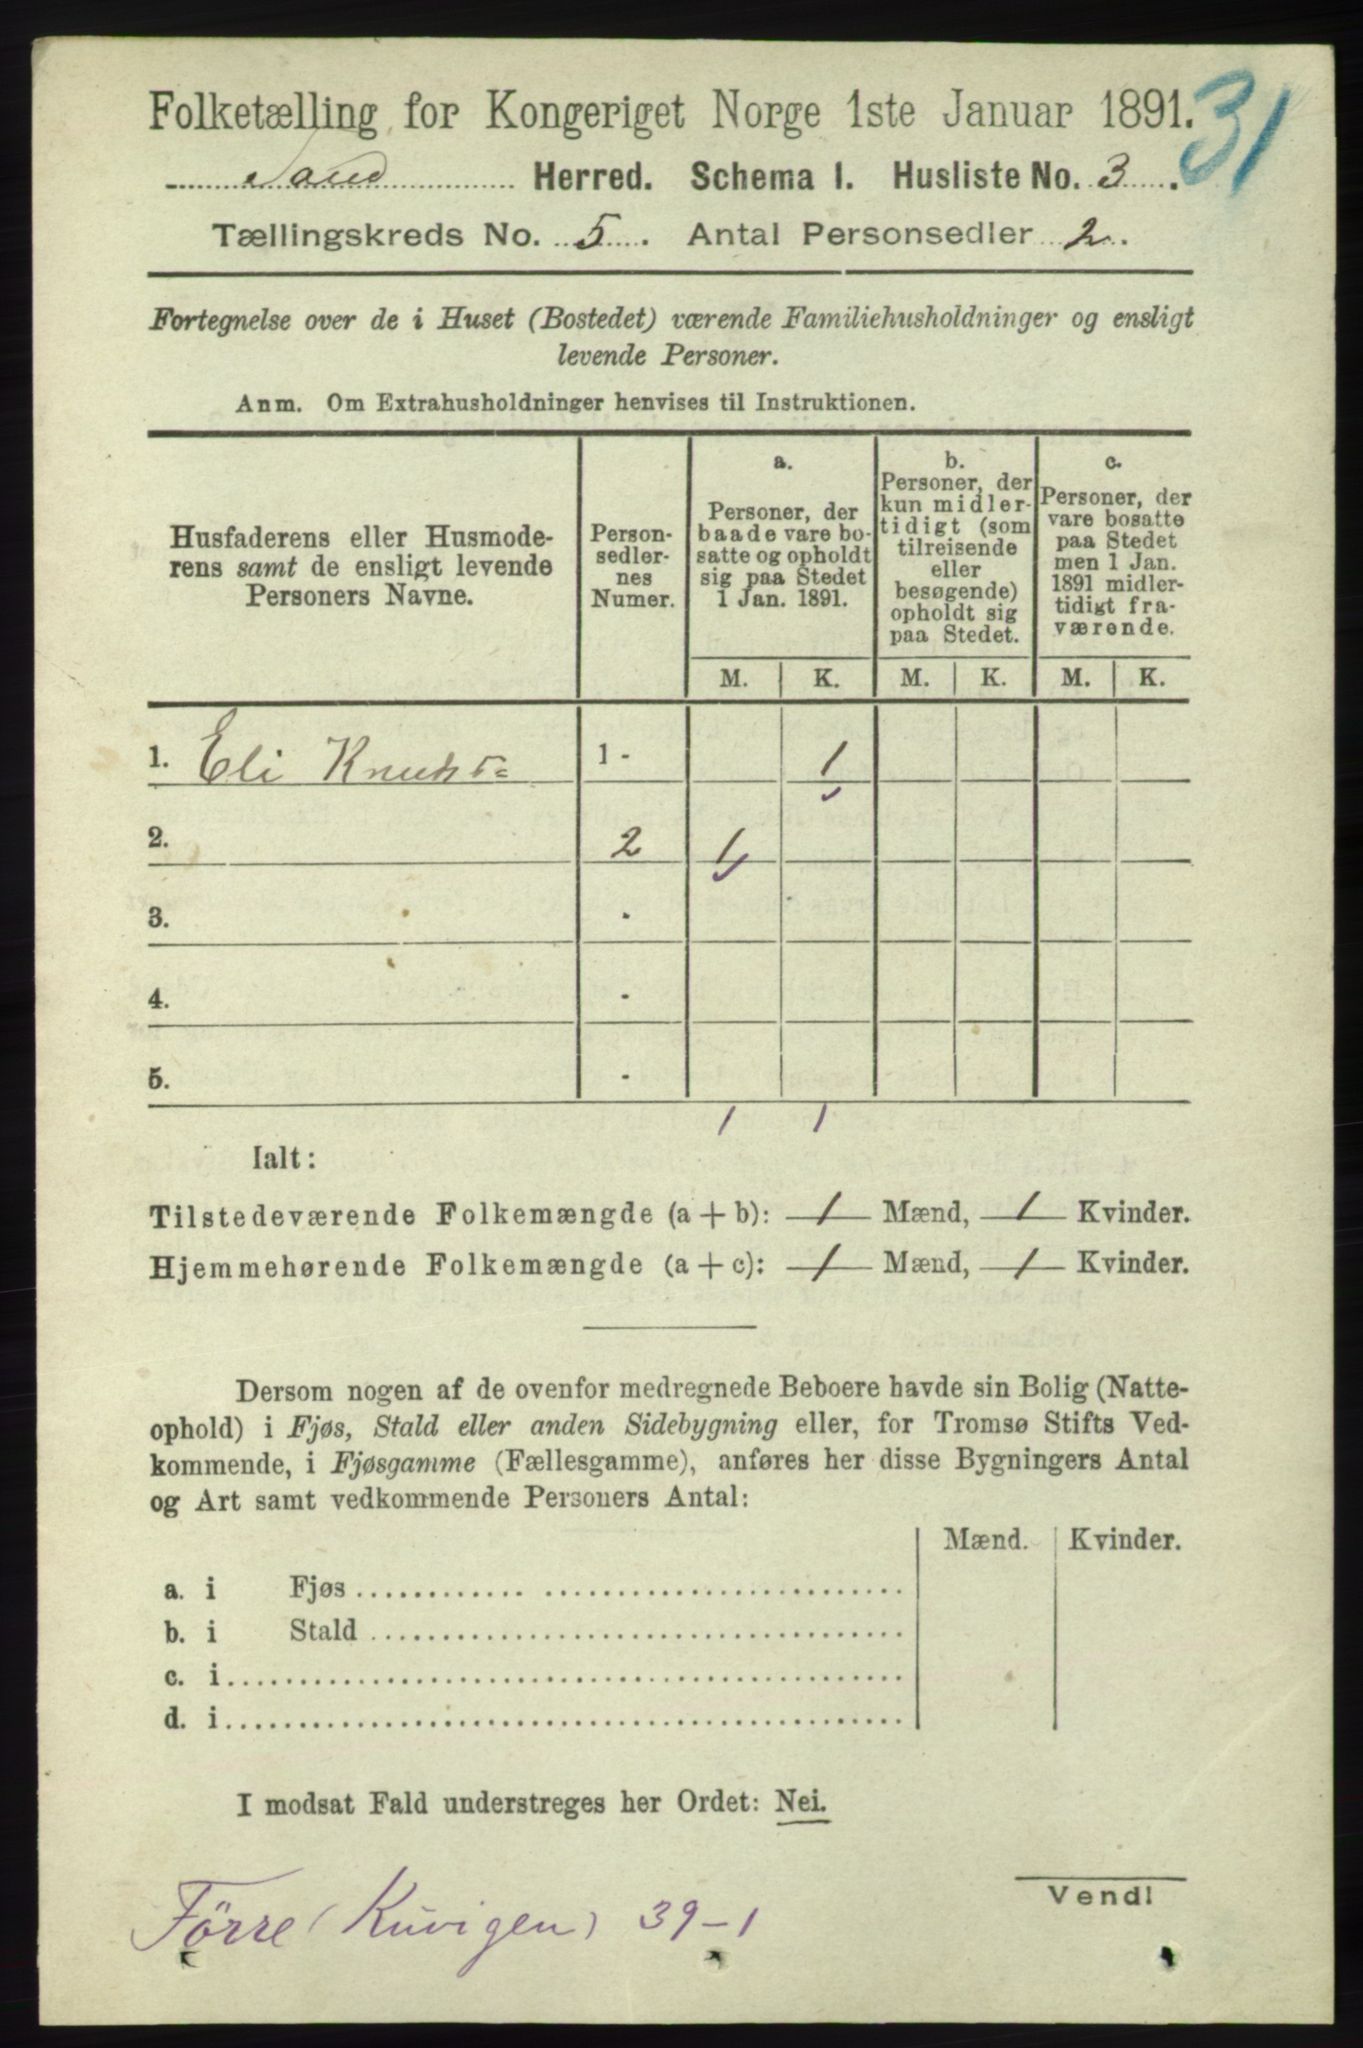 Folketælling for Kongeriget Norge 1ste Januar 1891.
31
Sand Herred. Schema 1. Husliste No. 3.
Tællingskreds No. 5. Antal Personsedler 2.
Fortegnelse over de i Huset (Bostedet) værende Familiehusholdninger og ensligt
levende Personer.
Anm. Om Extrahusholdninger henvises til Instruktionen.
Husfaderens eller Husmode-
rens samt de ensligt levende
Personers Navne.
Person-
sedler-
nes
Numer.
a.
Personer, der
baade vare bo-
satte og opholdt
sig paa Stedet
1 Jan. 1891.
b.
Personer, der
kun midler-
tidigt (som
tilreisende
eller
besøgende)
opholdt sig
paa Stedet.
c.
Personer, der
vare bosatte
paa Stedet
men 1 Jan.
1891 midler-
tidigt fra-
værende.
M. K. M. K. M. K.
1. Eli 1 - 1
2. 2 1
3. -
4. -
5. -
1 1
Ialt:
Tilstedeværende Folkemængde (a + b): 1 Mænd, 1 Kvinder.
Hjemmehørende Folkemængde (a + c): 1 Mænd, 1 Kvinder.
Dersom nogen af de ovenfor medregnede Beboere havde sin Bolig (Natte-
ophold) i Fjøs, Stald eller anden Sidebygning eller, for Tromsø Stifts Ved-
kommende, i Fjøsgamme (Fællesgamme), anføres her disse Bygningers Antal
og Art samt vedkommende Personers Antal:
Mænd. Kvinder.
a. i Fjøs
b. i Stald
c. i
d. i
I modsat Fald understreges her Ordet: Nei.
Vend!
Förre (Kuvigen) 39-1